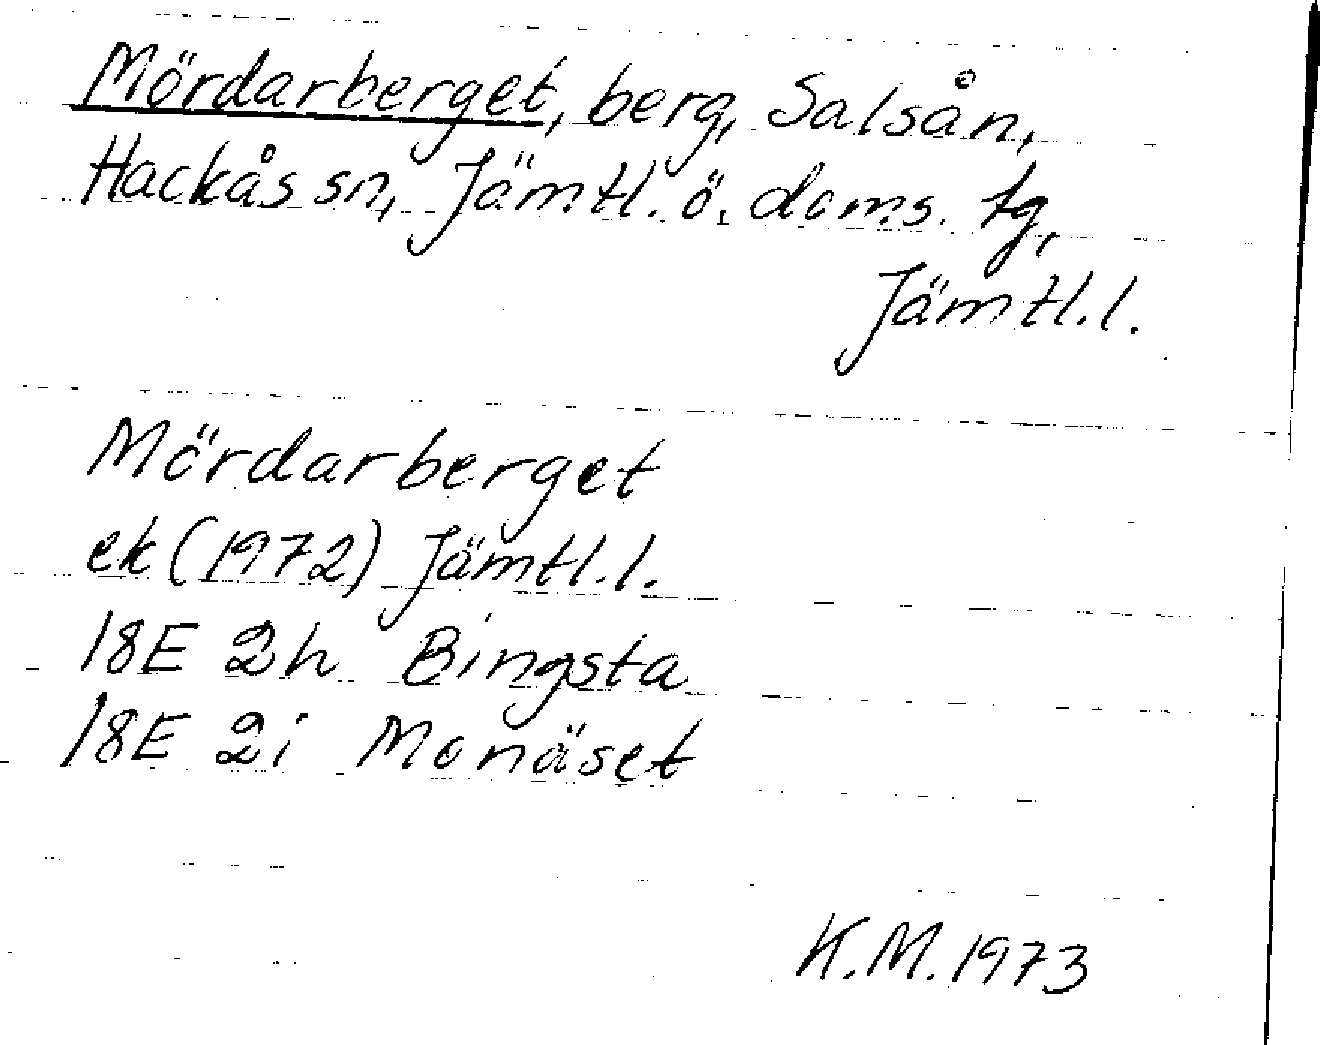 Mördarberget, berg, Salsån,
Hackås sn, Jämtl. ö. doms. tg,
Jämtl.l.
Mördarberget
ek (1972) Jämtl.l.
18E 2h Bingsta
18E 2i Monäset
K.M. 1973